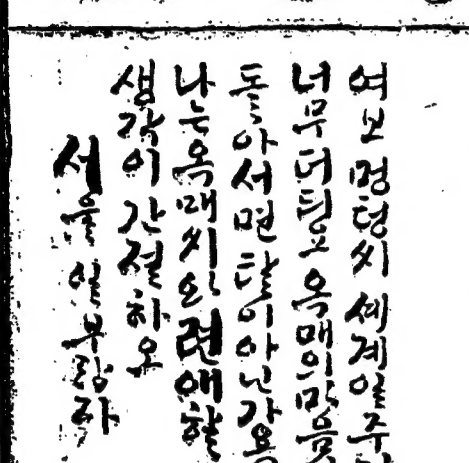 여보 명텅씨 세계일주
너무 더듸오 옥매의 맘
돌아서면 탈이아닌가용
나는 옥매씨와 련애할
생각이 간절하오
서울 일부랑자